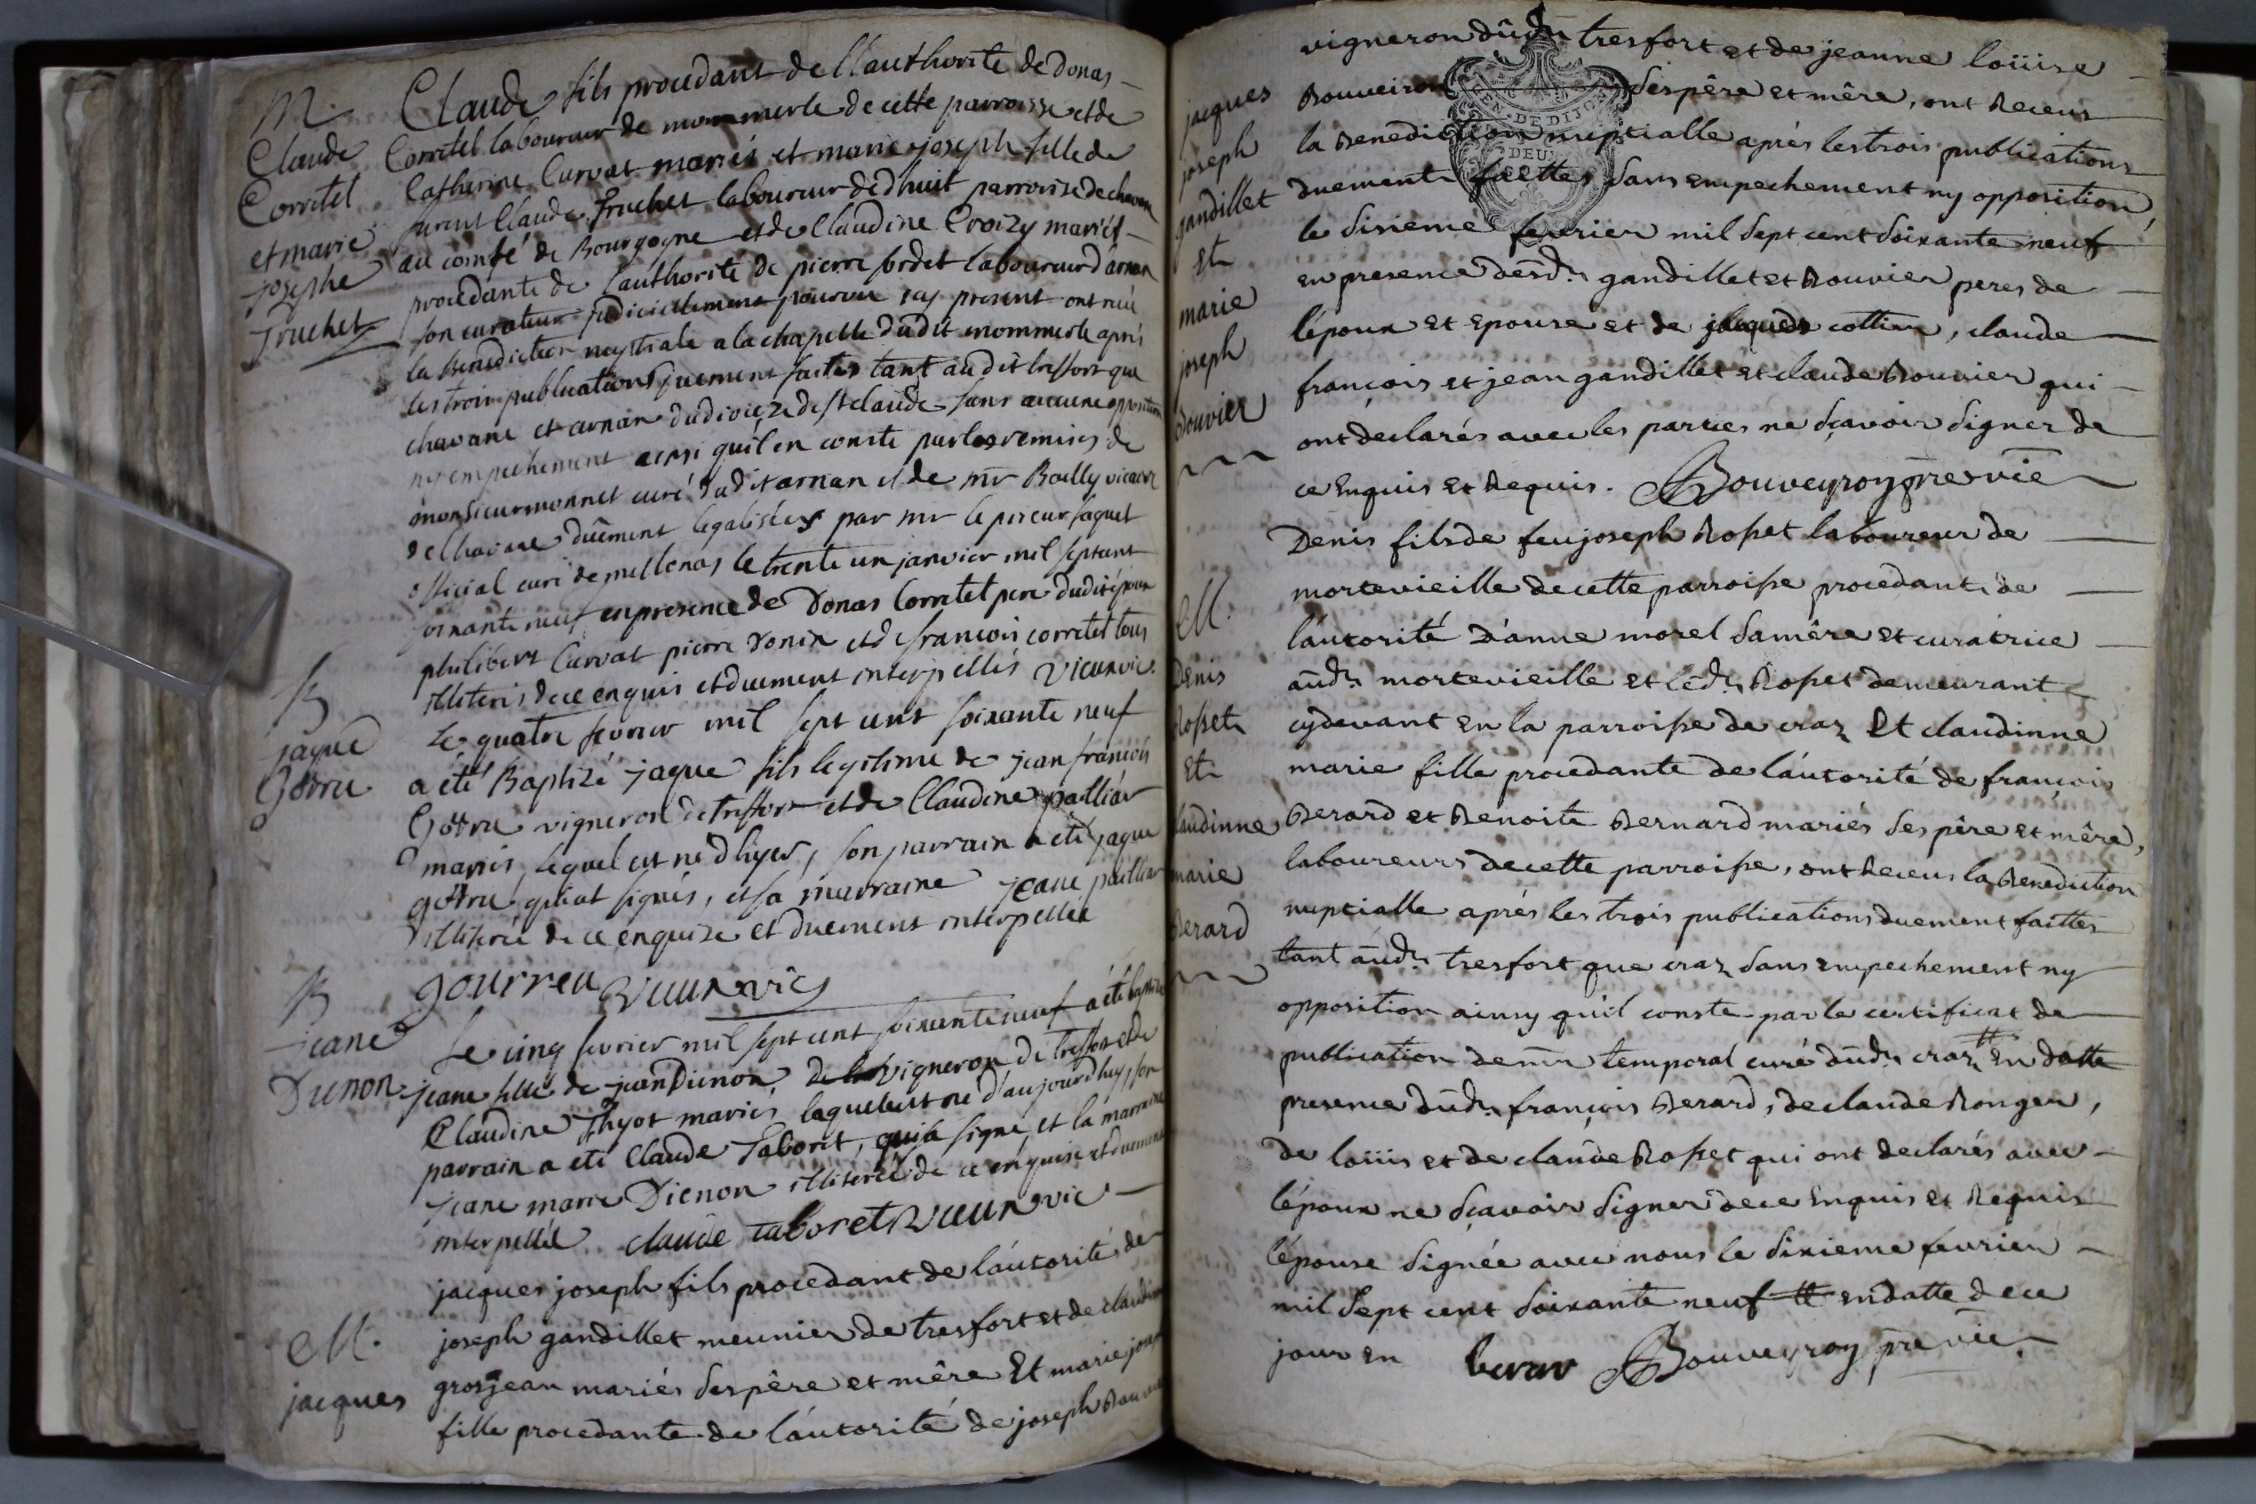 M.
Claude
Corretel
et marie
josephe
Truchet
Claude fils procedant de l'authorite de Donas
Corretel laboureur de mommerle de cette parroisse et de
Catherine Curvat mariés et marie joseph fille de
furent Claude Truchet laboureur de dhuit parroisse de chavane
au comté de Bourgogne et de Claudine Croizy mariés
procedante de l'authorité de pierre sordet laboureur d'arnan
son curateur judiciellement pourvu icy present ont reçu
la Benediction nuptiale a la chapelle dudit mommerle après
les trois publications duement faites tant audit treffort que
chavane et arnan du dioceze de st claude sans aucune opposition
ny empechement ainsi qu'il en conste par les remises de
monsieur monnet curé dudit arnan et de mr Bailly vicaire
de Chavane düement legalisées par mr le pireur jaquet
official curé de meillonas le trente un janvier mil sept cent
soixante neuf en presence de Donas Corretel pere dudit époux
philibert Curvat pierre Donin et de francois corretel tous
illiterés de ce enquis et duement interpellés Vicunvic.
B
jaque
Gorru
Le quatre fevrier mil sept cent soixante neuf
a été Baptizé jaque fils legitime de jean francois
Gorru vigneron de treffort et de Claudine palliar
mariés, lequel est né d'hyer, son parrain a été jaque
gorru qui at signés, et sa marraine jeane palliar
illiterée de ce enquise et duement interpellée
gourreu Vicun vic
B
jeane
Dienon
Le cinq fevrier mil sept cent soixante neuf a été baptizée
jeane fille de jean Dienon vigneron de treffort et de
Claudine Thyot mariés laquelle est née d'aujourd'huy, son
parrain a été Claude Taboret, qui a signé et la marraine
jeane marie Dienon illiterée de ce enquise et duement
interpellée claude taboret Vicun vic
M.
jacques
jacques joseph fils procedant de l'áutorité de
joseph gandillet meunier de tresfort et de claudine
grosjean mariés ses pêre et mêre Et marie joseph
fille procedante de l'áutorité de joseph Bouvier
jacques
joseph
gandillet
Et
marie
joseph
Bouvier
vigneron dûd. tresfort et de jeanne loüise
Bouveiron ses pêre et mêre, ont Receus
la Benediction nuptialle aprés les trois publications
duement faittes sans empechement ny opposition
le sixieme fevrier mil sept cent soixante neuf
en presence desd. gandillet et Bouvier peres de
l'époux et Epouse et de jacques collin, claude
françois et jean gandillet et claude Bouvier qui
ont declarés avec les parties ne sçavoir signer de
ce Enquis et Requis. Bouveyron pre vic
M.
Denis
Rosset
Et
claudinne
marie
Berard
Denis fils de feu joseph Rosset laboureur de
mortevieille de cette parroisse procedant de
l'áutorité D'anne morel sa mêre et curatrice
aud. mortevieille et led. Rosset demeurant
cydevant en la parroisse de craz Et claudinne
marie fille procedante de l'áutorité de françois
Berard et Benoite Bernard mariés ses pêre et mêre,
laboureurs de cette parroisse, ont Receus la Benediction
nuptialle aprés les trois publications duement faittes
tant aud. tresfort que craz sans empechement ny
opposition ainsy qu'il conste par le certificat de
publication de mr temporal curé dûd. craz # En datte
presence dûd. françois Berard, de claude Ronger,
de loüis et de claude Rosset qui ont declarés avec
l'époux ne sçavoir signer de ce Enquis et Requis
l'épouse signée avec nous le sixieme fevrier
mil sept cent soixante neuf # en datte de ce
jour En berar Bouveyron pre vic.
GEN. DE DIJON
DEUX